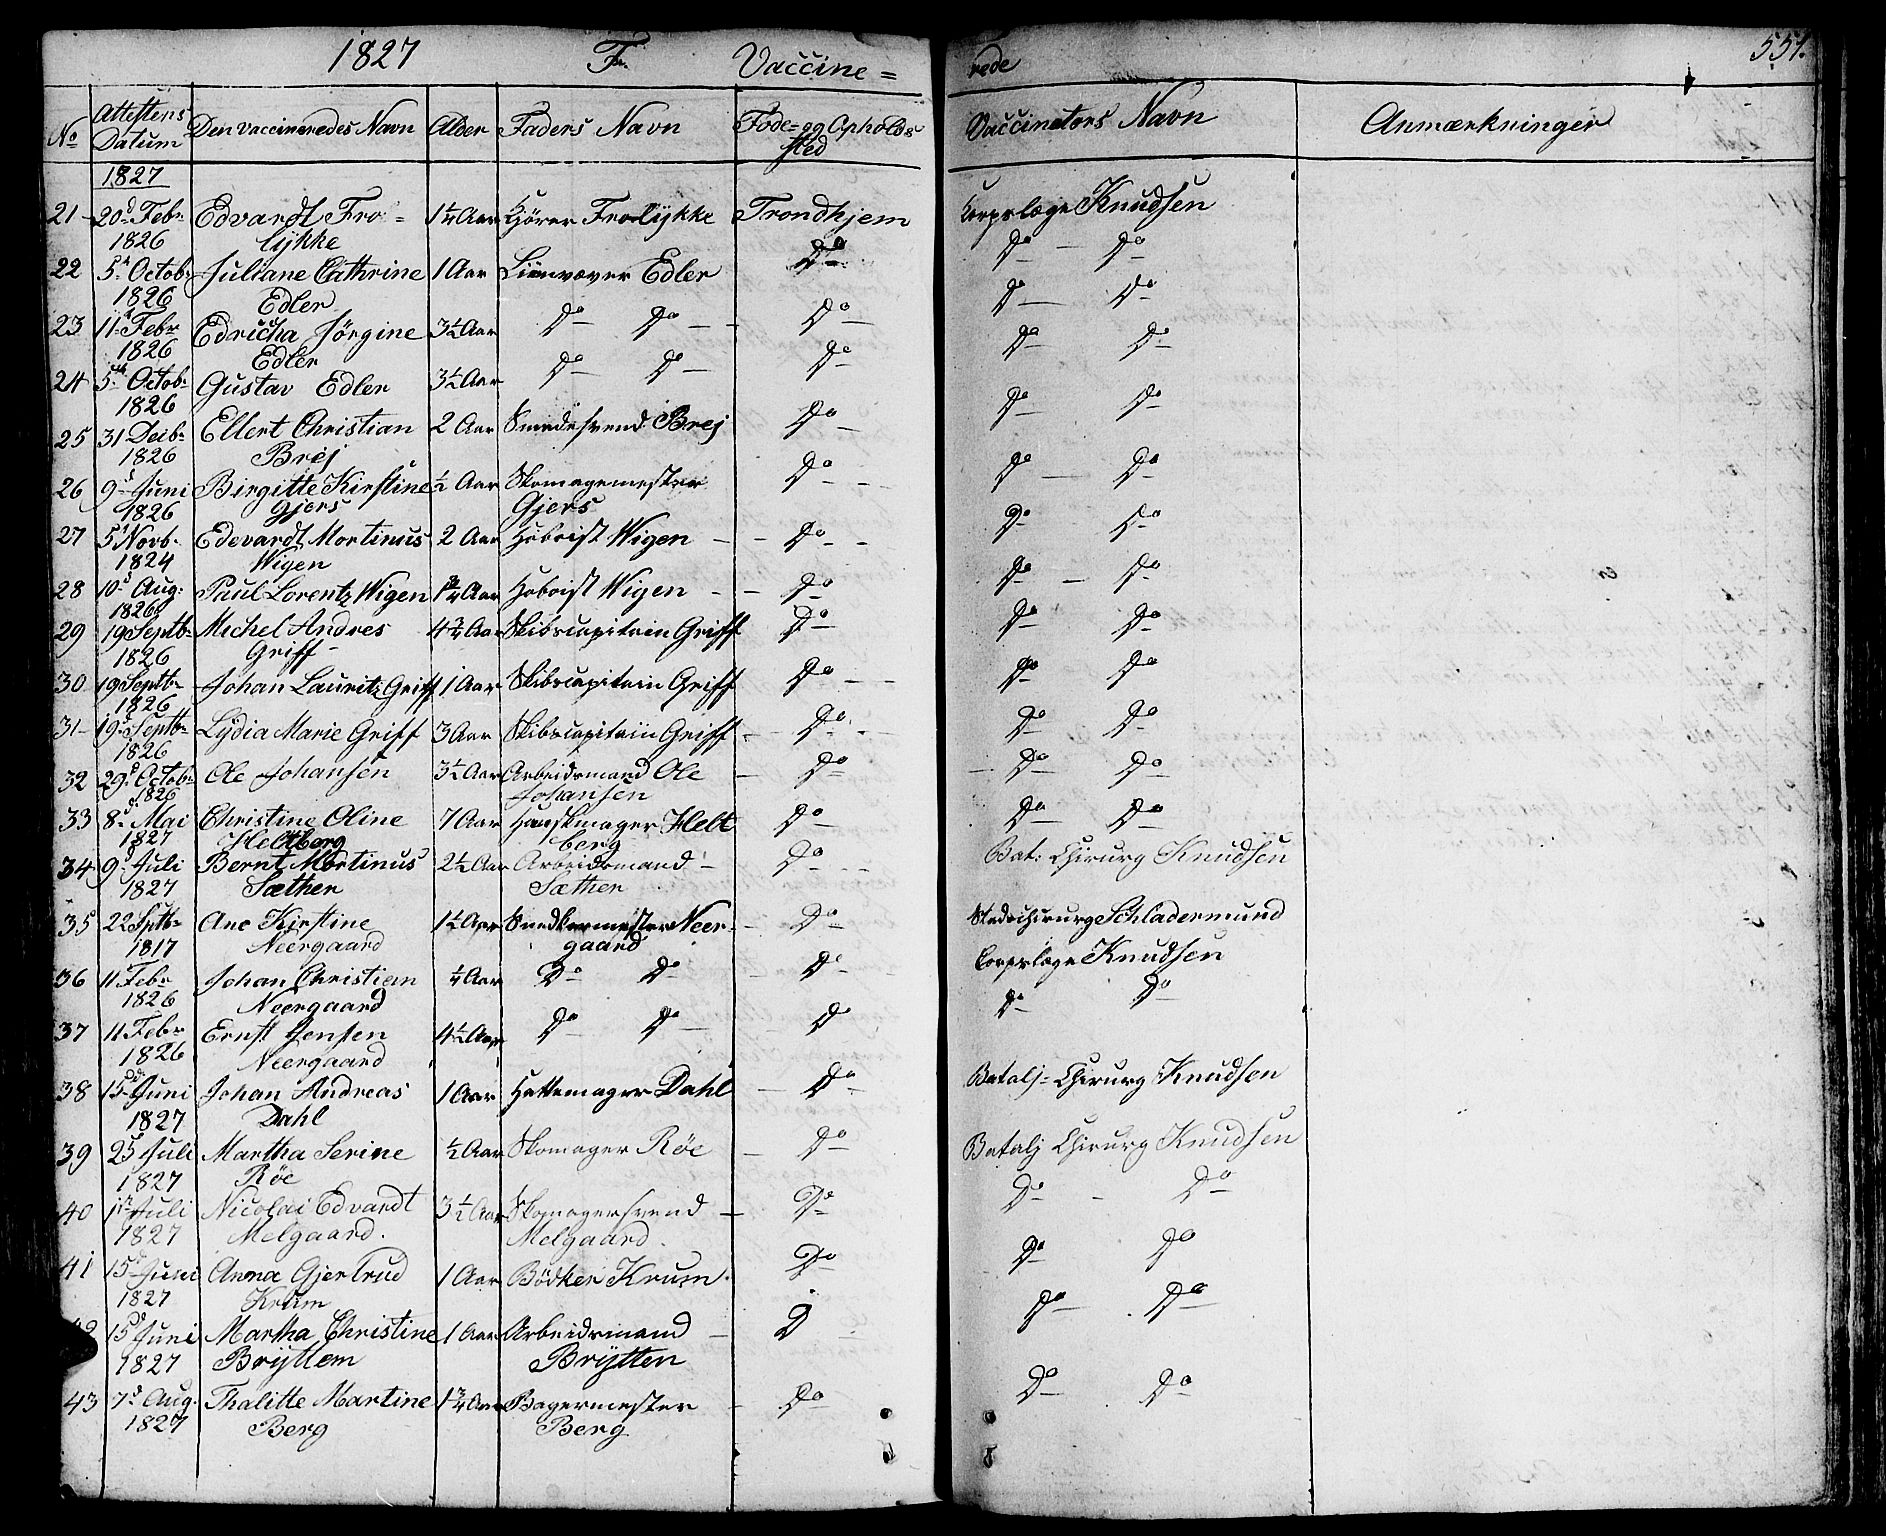 1827 F. Vaccine=
rede 551.
No Attestens Datum Den vaccineredes Navn Alder Faders Navn Føde= og Opholds sted Vaccinators Navn Anmærkninger
1827
21 20d Febr 1826 Edvardt Fro=lykke 1¼ Aar Frolykke Trondhjem Corpslæge Knudsen
22 5t Octob. 1826 Juliane Cathrine Edler 1 Aar Linvæver Edler Do Do Do
23 11t Febr 1826 Edricha Jørgine Edler 3½ Aar Do Do Do Do Do
24 5te Octob. 1826 Gustav Edler 3½ Aar Do Do Do Do Do
25 31 Decb. 1826 Ellert Christian Brej 2 Aar Smedesvend Brej Do Do Do
26 9d Juni 1826 Birgitte Kirstine Gjers ½ Aar Skomagemester Gjers Do Do Do
27 5t Novb. 1824 Edevardt Mortinus Wigen 2 Aar Hoboist Wigen Do Do Do
28 10d Aug: 1826 Paul Lorentz Wigen 1¾ Aar Hoboist Wigen Do Do Do
29 19 Septb. 1826 Michel Andres Griff 4¾ Aar Skibscapitain Griff Do Do Do
30 19 Septb. 1826 Johan Lauritz Griff 1 Aar Skibscapitain Griff Do Do Do
31 19d Septb. 1826 Lydia Marie Griff 3 Aar Skibscapitain Griff Do Do Do
32 29d Octob. 1826 Ole Johansen 3½ Aar Arbeidsmand Ole Johansen Do Do Do
33 8d Mai 1827 Christine Oline Heltberg 7 Aar Handskmager Heltberg Do Do Do
34 9d Juli 1827 Bernt Mortinus Sæther 2½ Aar Arbeidsmand Sæther Do Bat: Chirurg Knudsen
35 22 Septb. 1817 Ane Kirstine Neergaard 1½ Aar Snedkermester Neergaard Do Stadschirurg Schladermund
36 11 Febr. 1826 Johan Christian Neergaard ¼ Aar Do Do Do Corpslæge Knudsen
37 11 Febr 1826 Ernst Jensen Neergaard 4½ Aar Do Do Do Do Do
38 15de Juni 1827 Johan Andreas Dahl 1 Aar Hattemager Dahl Do Batalj= Chirurg Knudsen
39 25 Juli 1827 Martha Serine Röe ½ Aar Skomager Röe Do Batalj Chirurg Knudsen
40 1t Juli 1827 Nicolai Edvardt Melgaard. 3½ Aar Skomagersvend Melgaard. Do Do Do
41 15d Juni 1827 Anna Gjertrud Krum 1 Aar Bödker Krum. Do Do Do
42 15d Juni 1827 Martha Christine Bryttem 1 Aar Arbeidsmand Brytten D Do Do
43 7d Aug. 1827 Thalitte Martine Berg 1¾ Aar Bagermester Berg Do Do Do